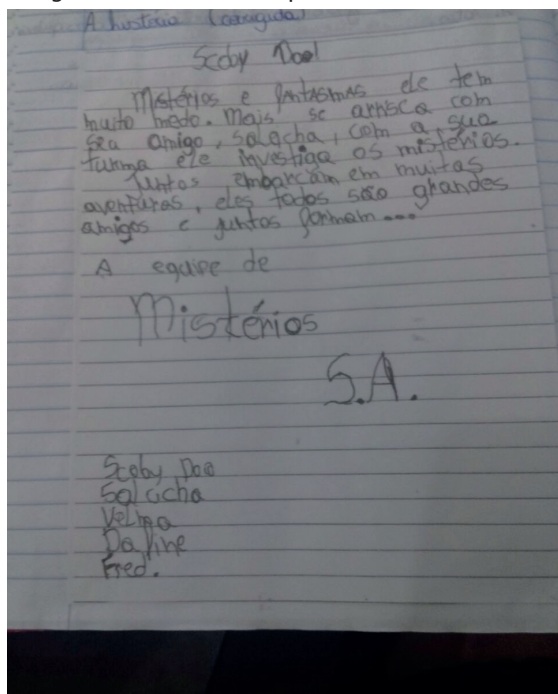 A história (corrigida)
Scoby Doo!
Mistérios e fantasmas ele tem
muito medo. Mais se arrisca com
seu amigo, salcicha, com a sua
turma ele investiga os mistérios.
Juntos embarcam em muitas
aventuras, eles todos são grandes
amigos e juntos formam...
A equipe de
Mistérios
S.A.
Scoby Doo
Salcicha
Velma
Dafine
Fred.